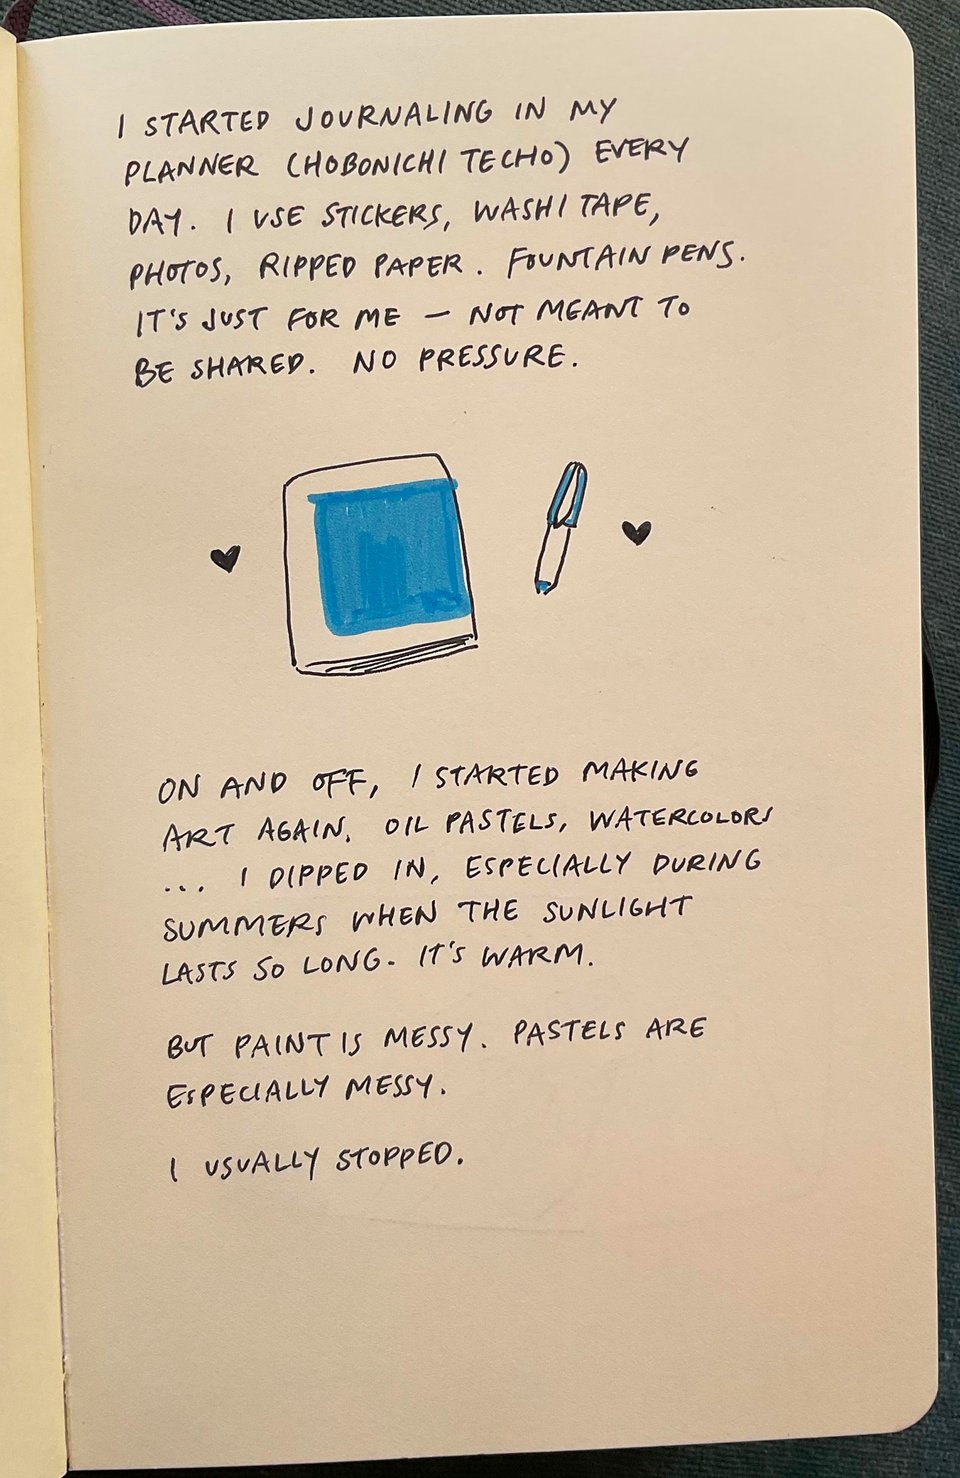 I STARTED JOURNALING IN MY
PLANNER (HOBONICHI TECHO) EVERY
DAY. I USE STICKERS, WASHI TAPE,
PHOTOS, RIPPED PAPER. FOUNTAIN PENS.
IT'S JUST FOR ME — NOT MEANT TO
BE SHARED. NO PRESSURE.
ON AND OFF, I STARTED MAKING
ART AGAIN. OIL PASTELS, WATERCOLORS
... I DIPPED IN, ESPECIALLY DURING
SUMMERS WHEN THE SUNLIGHT
LASTS SO LONG. IT'S WARM.
BUT PAINT IS MESSY. PASTELS ARE
ESPECIALLY MESSY.
I USUALLY STOPPED.